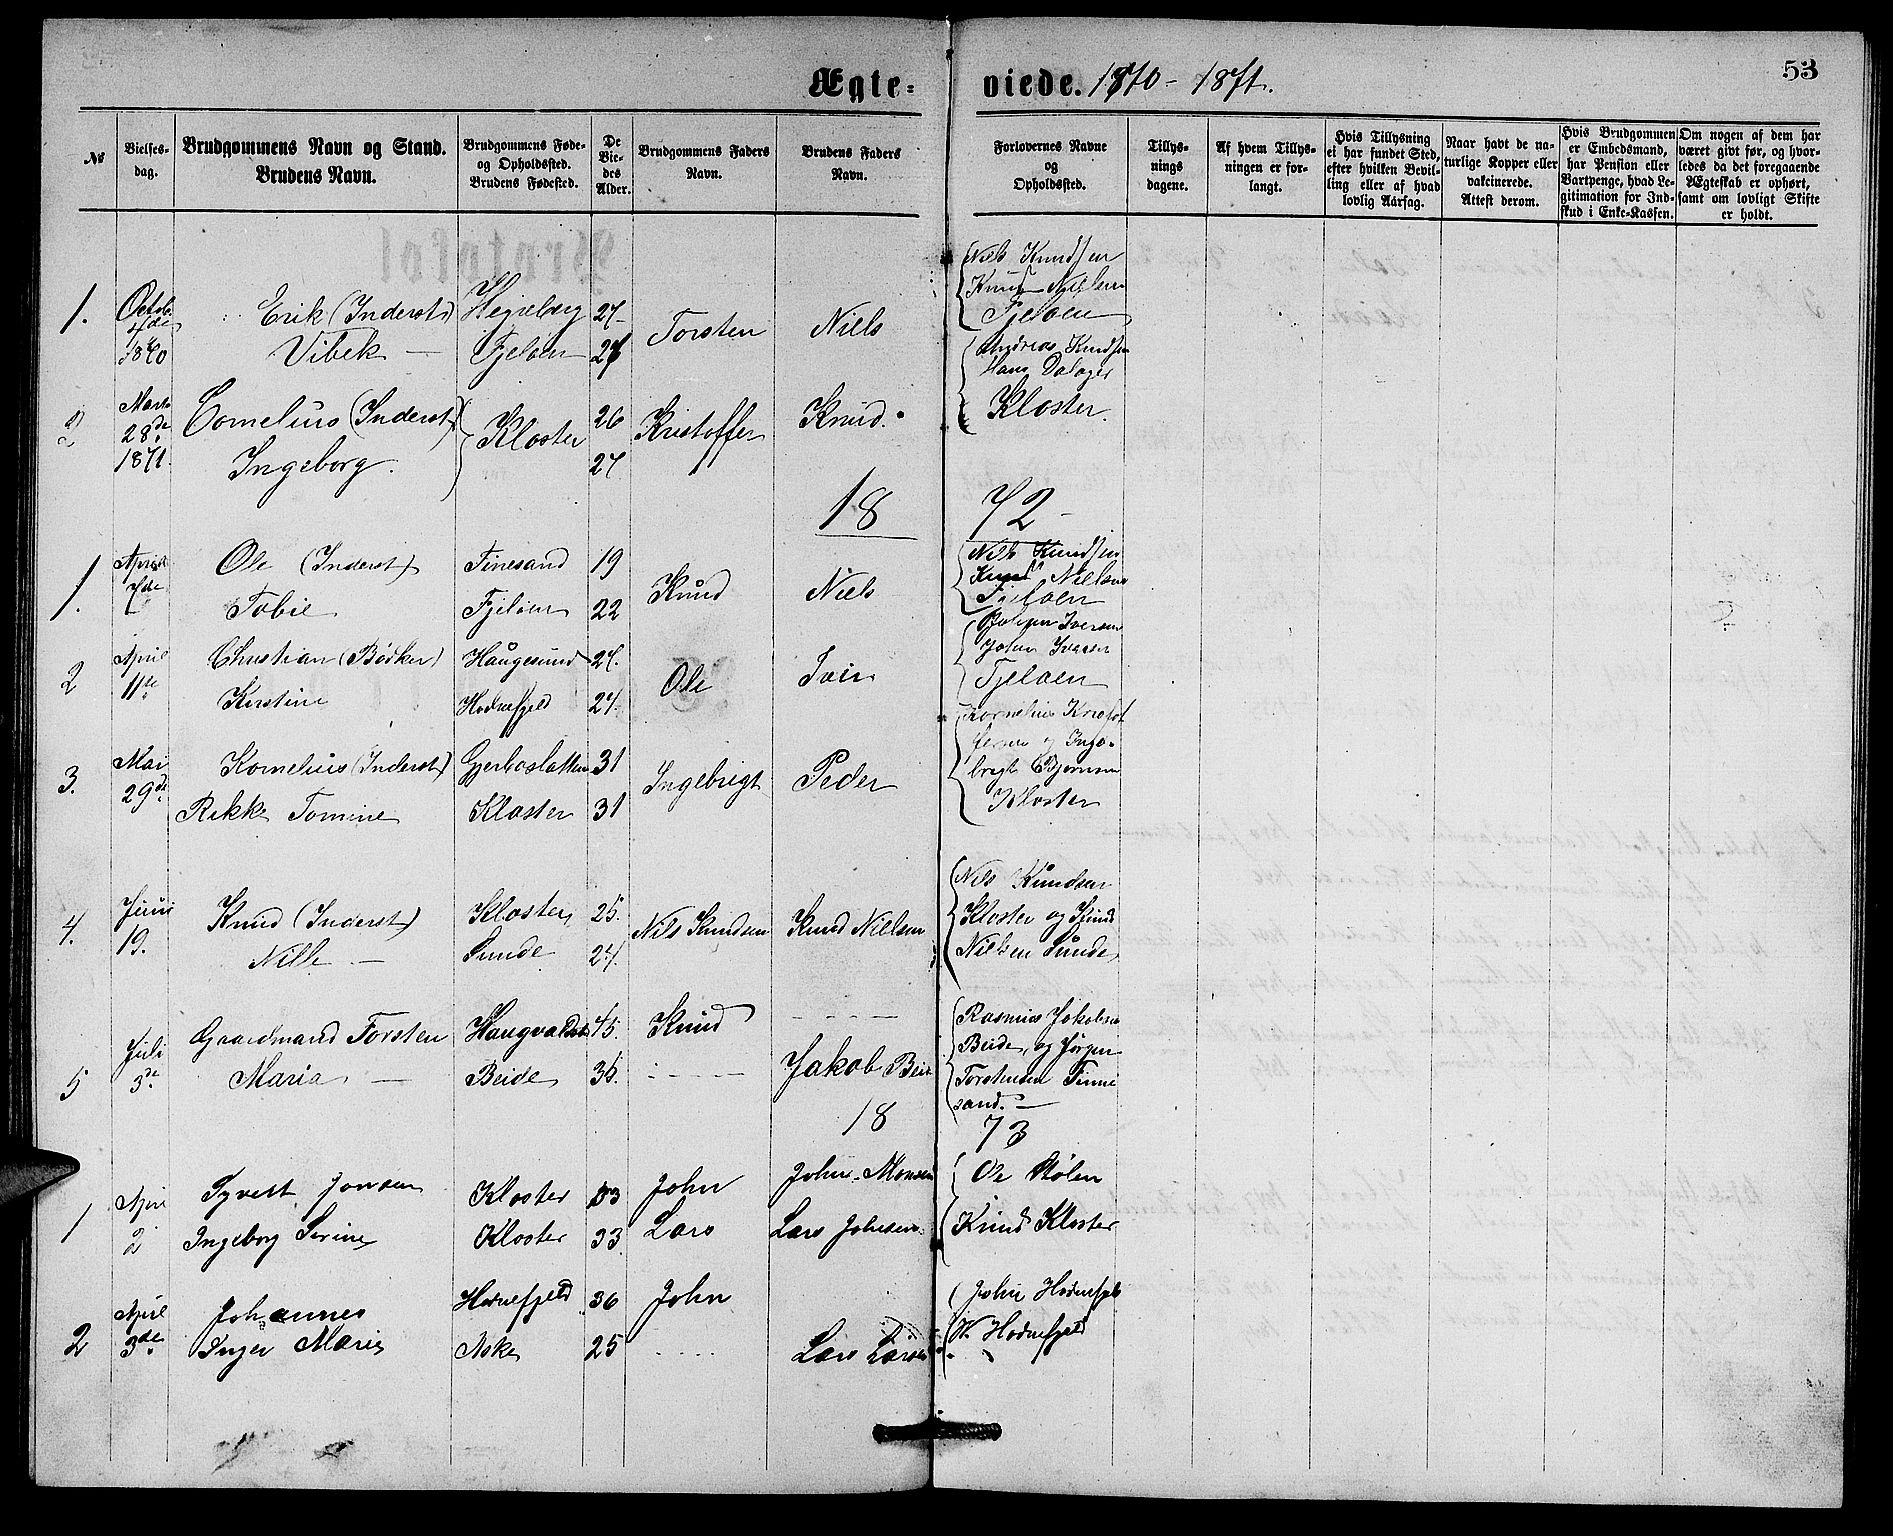 Ægte-viede. 1870 - 1871.
53
No
Vielses-
dag.
Brudgommens Navn og Stand.
Brudens Navn.
Brudgommens Føde-
og Opholdssted.
Brudens Fødested.
De
Vie-
des
Alder.
Brudgommens Faders
Navn.
Brudens Faders
Navn.
Forlovernes Navne
og
Opholdssted.
Tillys-
nings
dagene.
Af hvem Tillys-
ningen er for-
langt.
Hvis Tillysning
ei har fundet Sted,
efter hvilken Bevil-
ling eller af hvad
lovlig Aarsag.
Naar havt de na-
turlige Kopper eller
vakcinerede.
Attest derom.
Hvis Brudgommen
er Embedsmand,
har Pension eller
Vartpenge, hvad Le-
gitimation for Ind-
skud i Enke-Kassen.
Om nogen af dem har
været givt før, og hvor-
ledes da det foregaaende
Ægteskab er ophørt,
samt om lovligt Skifte
er holdt.
1. Octob. 4de 1870
Erik (Inderst) Hegreberg 27
Vibek — Fjeløen 27
Torsten Niels
Niels Knudsen
Knud Nielsen
Fjeløen
2 Marts 28de 1871.
Cornelius (Inderst) Kloster 26
Ingeborg. 27
Kristoffer Knud.
Andreas Knudsen
Hans Dalager
Kloster
18 72
1. April 7de
Ole (Inderst) Finesand 19
Tobie Fjeløen 22
Knud Niels
Nils Knudsen
Knud Nielsen
Fjeløen
2 April 11te
Christian (Bødker) Haugesund 27.
Kirstine Hodnefjeld 27.
Ole Iver
Iversen
John Iversen
Fjeløen
3. Mai 29de
Kornelius (Inderst) 31
Rikke Tomine Kloster 31
Ingebrigt Peder
Kornelius Kristof
fersen og Inge-
brigt Bjørnsen
Kloster
4. Juni 19.
Knud (Inderst) Kloster, 25.
Nille — Sunde 27.
Nils Knudsen Knud Nielsen
Nils Knudsen
Kloster og Knud
Nielsen Sunde
5 Juli 3de
Gaardmand Torsten Haugvaldst 45.
Maria — Beide 35.
Knud
Jakob Beide
Rasmus Jakobsen
Beide, og Jørgen
Torstensen Finne
sand. —
18 73
1 April 2
Syvert Jonsen Kloster 33
Ingeborg Serine Kloster 33
John John Monsen
Lars Lars Johnsen
Ole Stølen
Knud Kloster
2 April 3de
Johannes Hodnefjeld 36
Inger Marie Aske 25
John
Lars Larsen
John Hodnefjeld
Hodnefjeld